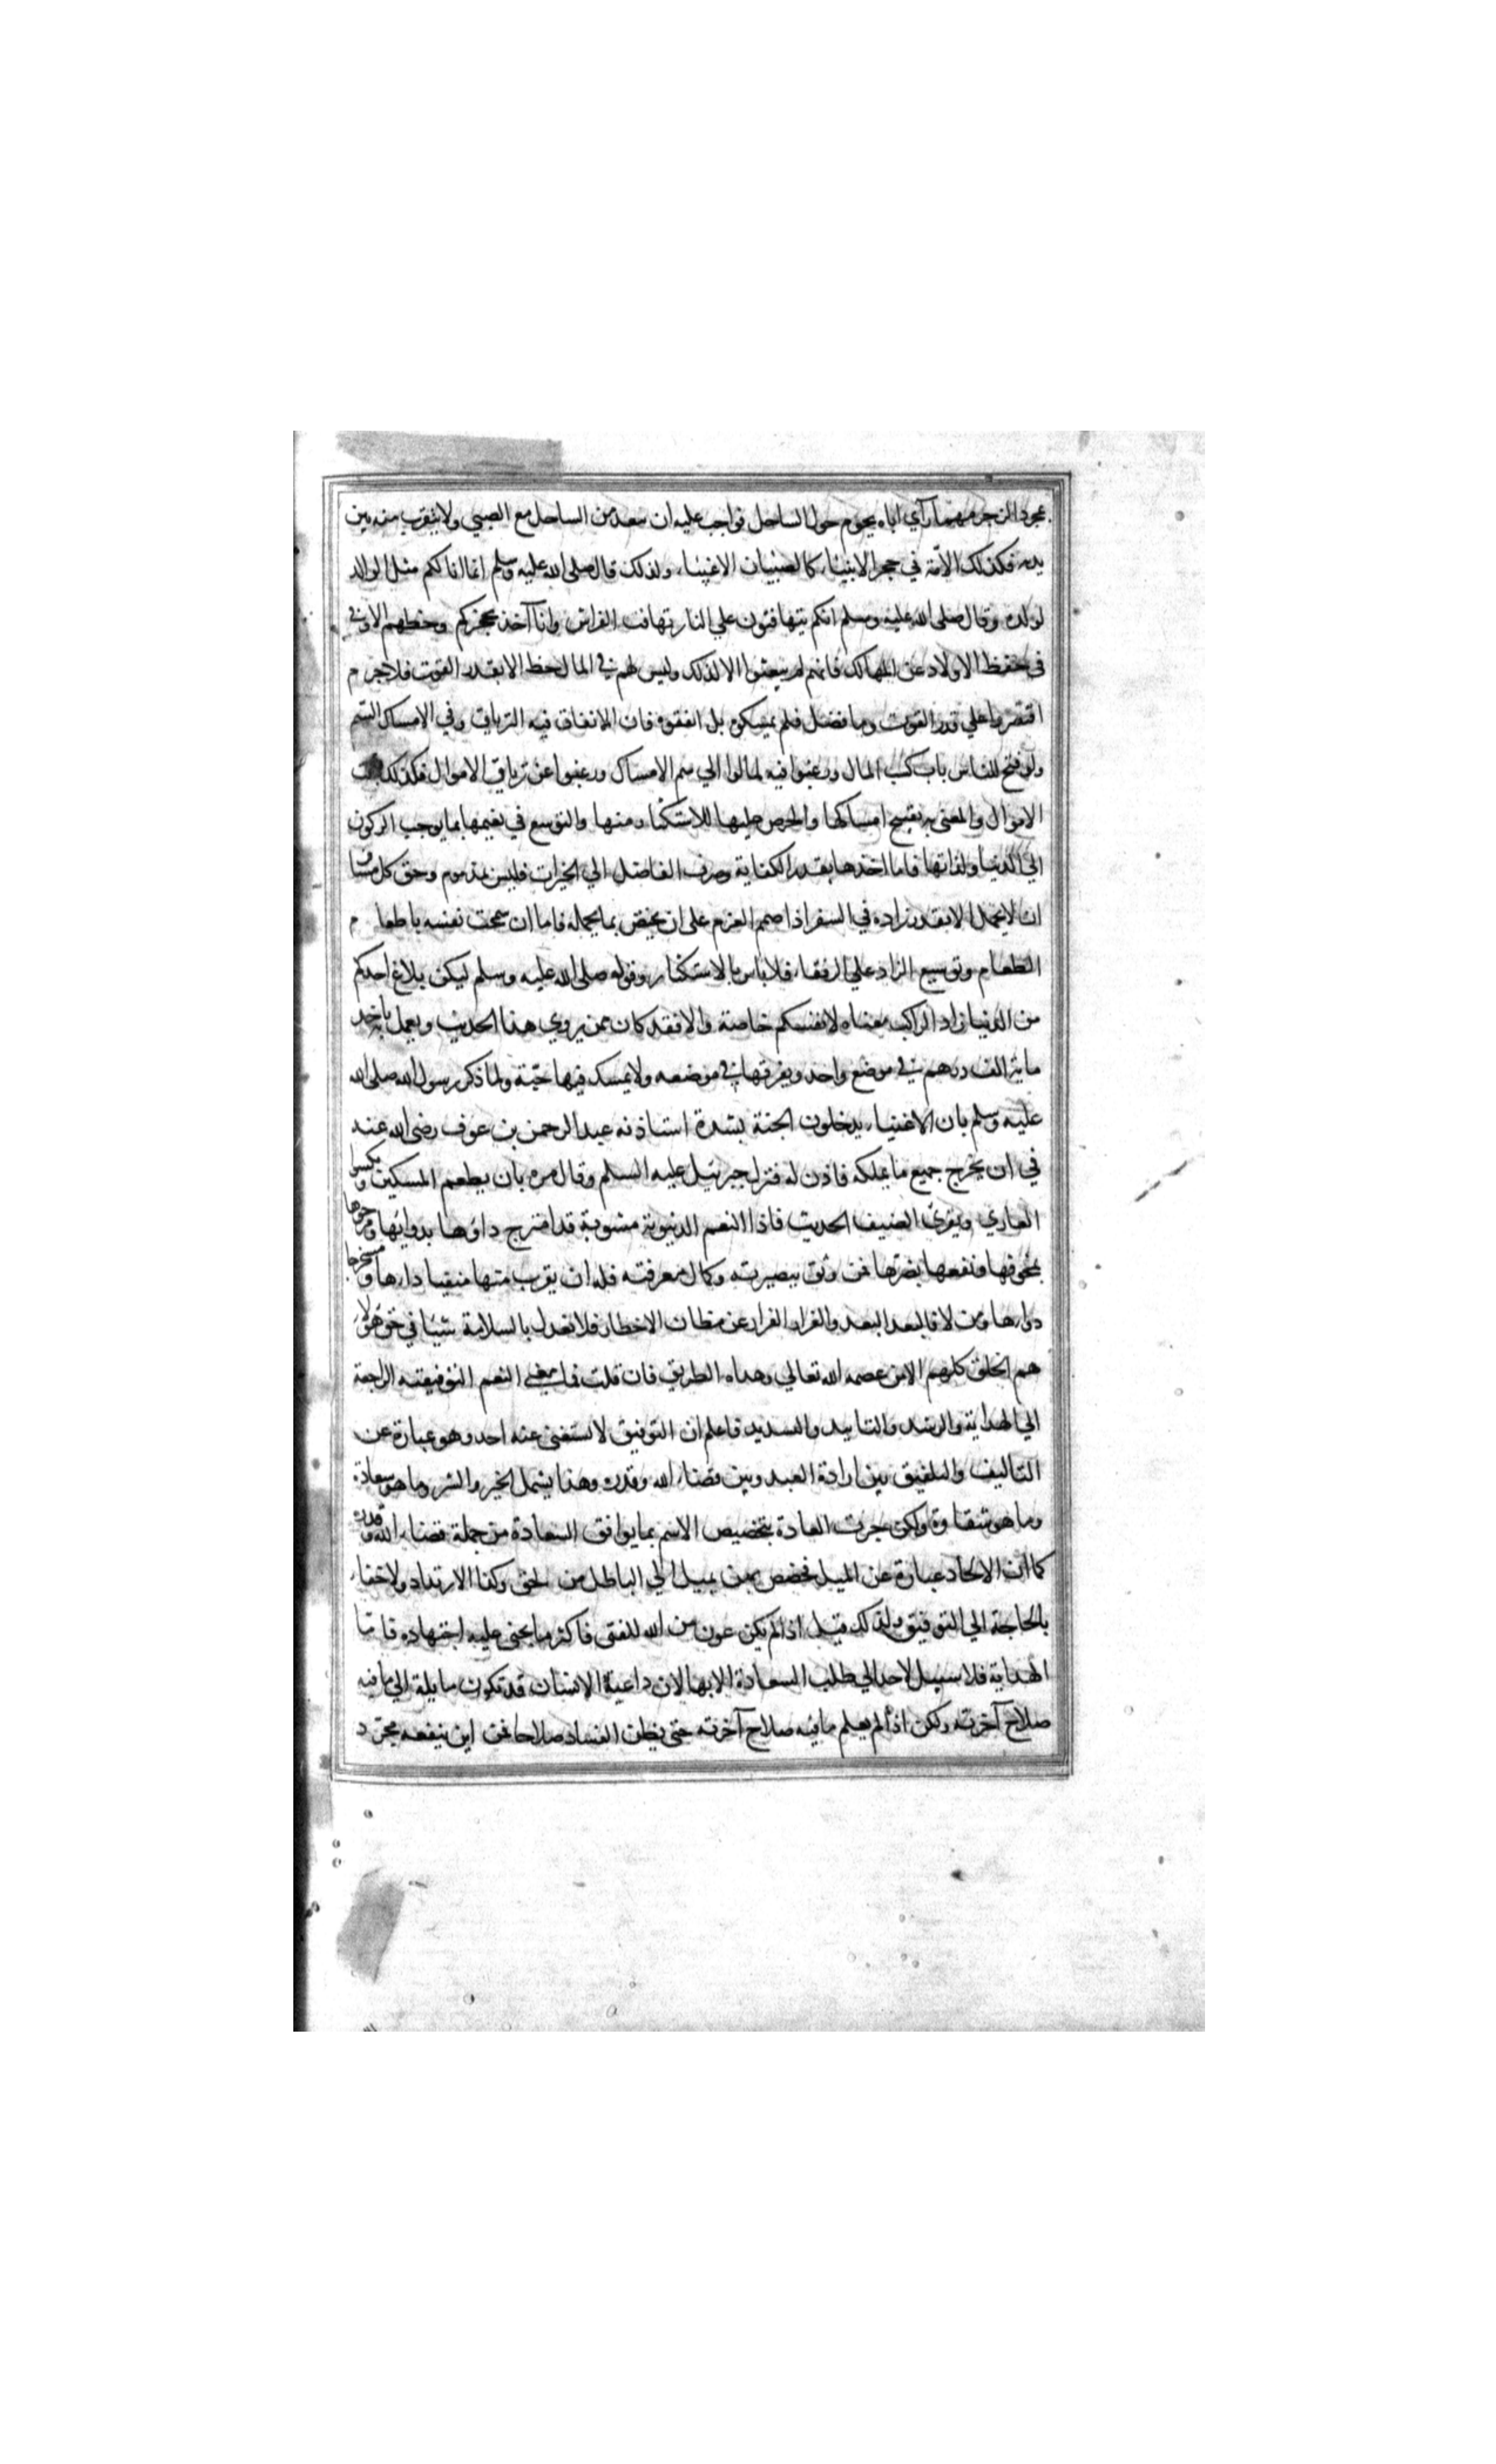 بمجرد الزجر مهما رأي اباه يحوم حول الساحل فواجب عليه ان يبعد من الساحل مع الصبي ولا يتقرب منه بين
يديه فكذلك الامّة في حجر الانبياء كالصبيان الاغبياء ولذلك قال صلى الله عليه وسلم انما انا لكم مثل الوالد
لولده وقال صلى الله عليه وسلم انكم تتهافتون علي النار تهافت الفراش وانا آخذ بحجزكم وحظهم الاوفي
في حفظ الاولاد عن المهالك فانهم لم يبعثوا الا لذلك وليس لهم في المال حظ الا بقدر القوت فلا جرم م
اقتصروا علي قدر القوت وما فضل فلم يمسكوه بل انفقوه فان الانفاق فيه الترياق وفي الامساك السم
ولو فتح للناس باب كسب المال ورغبوا فيه لمالوا الي سم الامساك ورغبوا عن ترياق الاموال فكذلك
الاموال والمعنى به تقبيح امساكها والحرص عليها للاستكثار منها والتوسع في نعيمها بما يوجب الركون
الي الدنيا ولذاتها فاما اخذها بقدر الكفاية وصرف الفاضل الي الخيرات فليس بمذموم وحق كل مسافر
ان لا يحمل الا بقدر زاده في السفر اذا صمم العزم على ان يختص بما يحمله فاما ان سمحت نفسه باطعا م
الطعام وتوسيع الزاد علي الرفقاء فلا باس بالاستكثار وقوله صلى الله عليه وسلم ليكن بلاغ احدكم
من الدنيا زاد الراكب معناه لانفسكم خاصة والا فقد كان ممن يروي هذا الحديث ويعمل به ياخذ
ماية الف درهم في موضع واحد ويفرقها في موضعه ولا يمسك فيها حبّة ولما ذكر رسول الله صلى الله
عليه وسلم بان الاغنياء يدخلون الجنة بشدة استاذنه عبد الرحمن بن عوف رضى الله عنه
في ان يخرج جميع ما يملكه فاذن له فنزل جبرئيل عليه السلم وقال مره بان يطعم المسكين ويكسوا
العاري ويقري الضيف الحديث فاذا النعم الدنيوية مشوبة قد امتزج داؤها بدوائها ومرجوها
بمخوفها ونفعها بضرّها فمن وثق ببصيرته وكمال معرفته فله ان يقرب منها متقيا داءها ومستخرجا
دواءها ومن لا فالبعد البعد والفرار الفرار عن مظان الاخطار فلا تعدل بالسلامة شيئا في حق هؤلاء
هم الخلق كلهم الا من عصمه الله تعالي وهداه الطريق فان قلت فما معني النعم التوفيقيه الراجعة
الي الهداية والرشد والتاييد والتسديد فاعلم ان التوفيق لا يستغنى عنه احد وهو عبارة عن
التاليف والتلفيق بين ارادة العبد وبين قضاء الله وقدره وهذا يشمل الخير والشر وما هو سعادة
وما هو شقاوة ولكن جرت العادة بتخصيص الاسم بما يوافق السعادة من جملة قضاء الله وقدره
كما ان الالحاد عبارة عن الميل فخصص بمن يميل الي الباطل من الحق وكذا الارتداد ولا خفاء
بالحاجة الي التوفيق ولذلك قيل اذا لم يكن عون من الله للفتى فاكثر ما يجنى عليه اجتهاده فاما
الهداية فلا سبيل لاحد الي طلب السعادة الا بها لان داعية الانسان قد تكون مايلة الي ما فيه
صلاح آخرته ولكن اذا لم يعلم ما فيه صلاح آخرته حتى يظن الفساد صلاحا فمن اين ينفعه مجرّ د